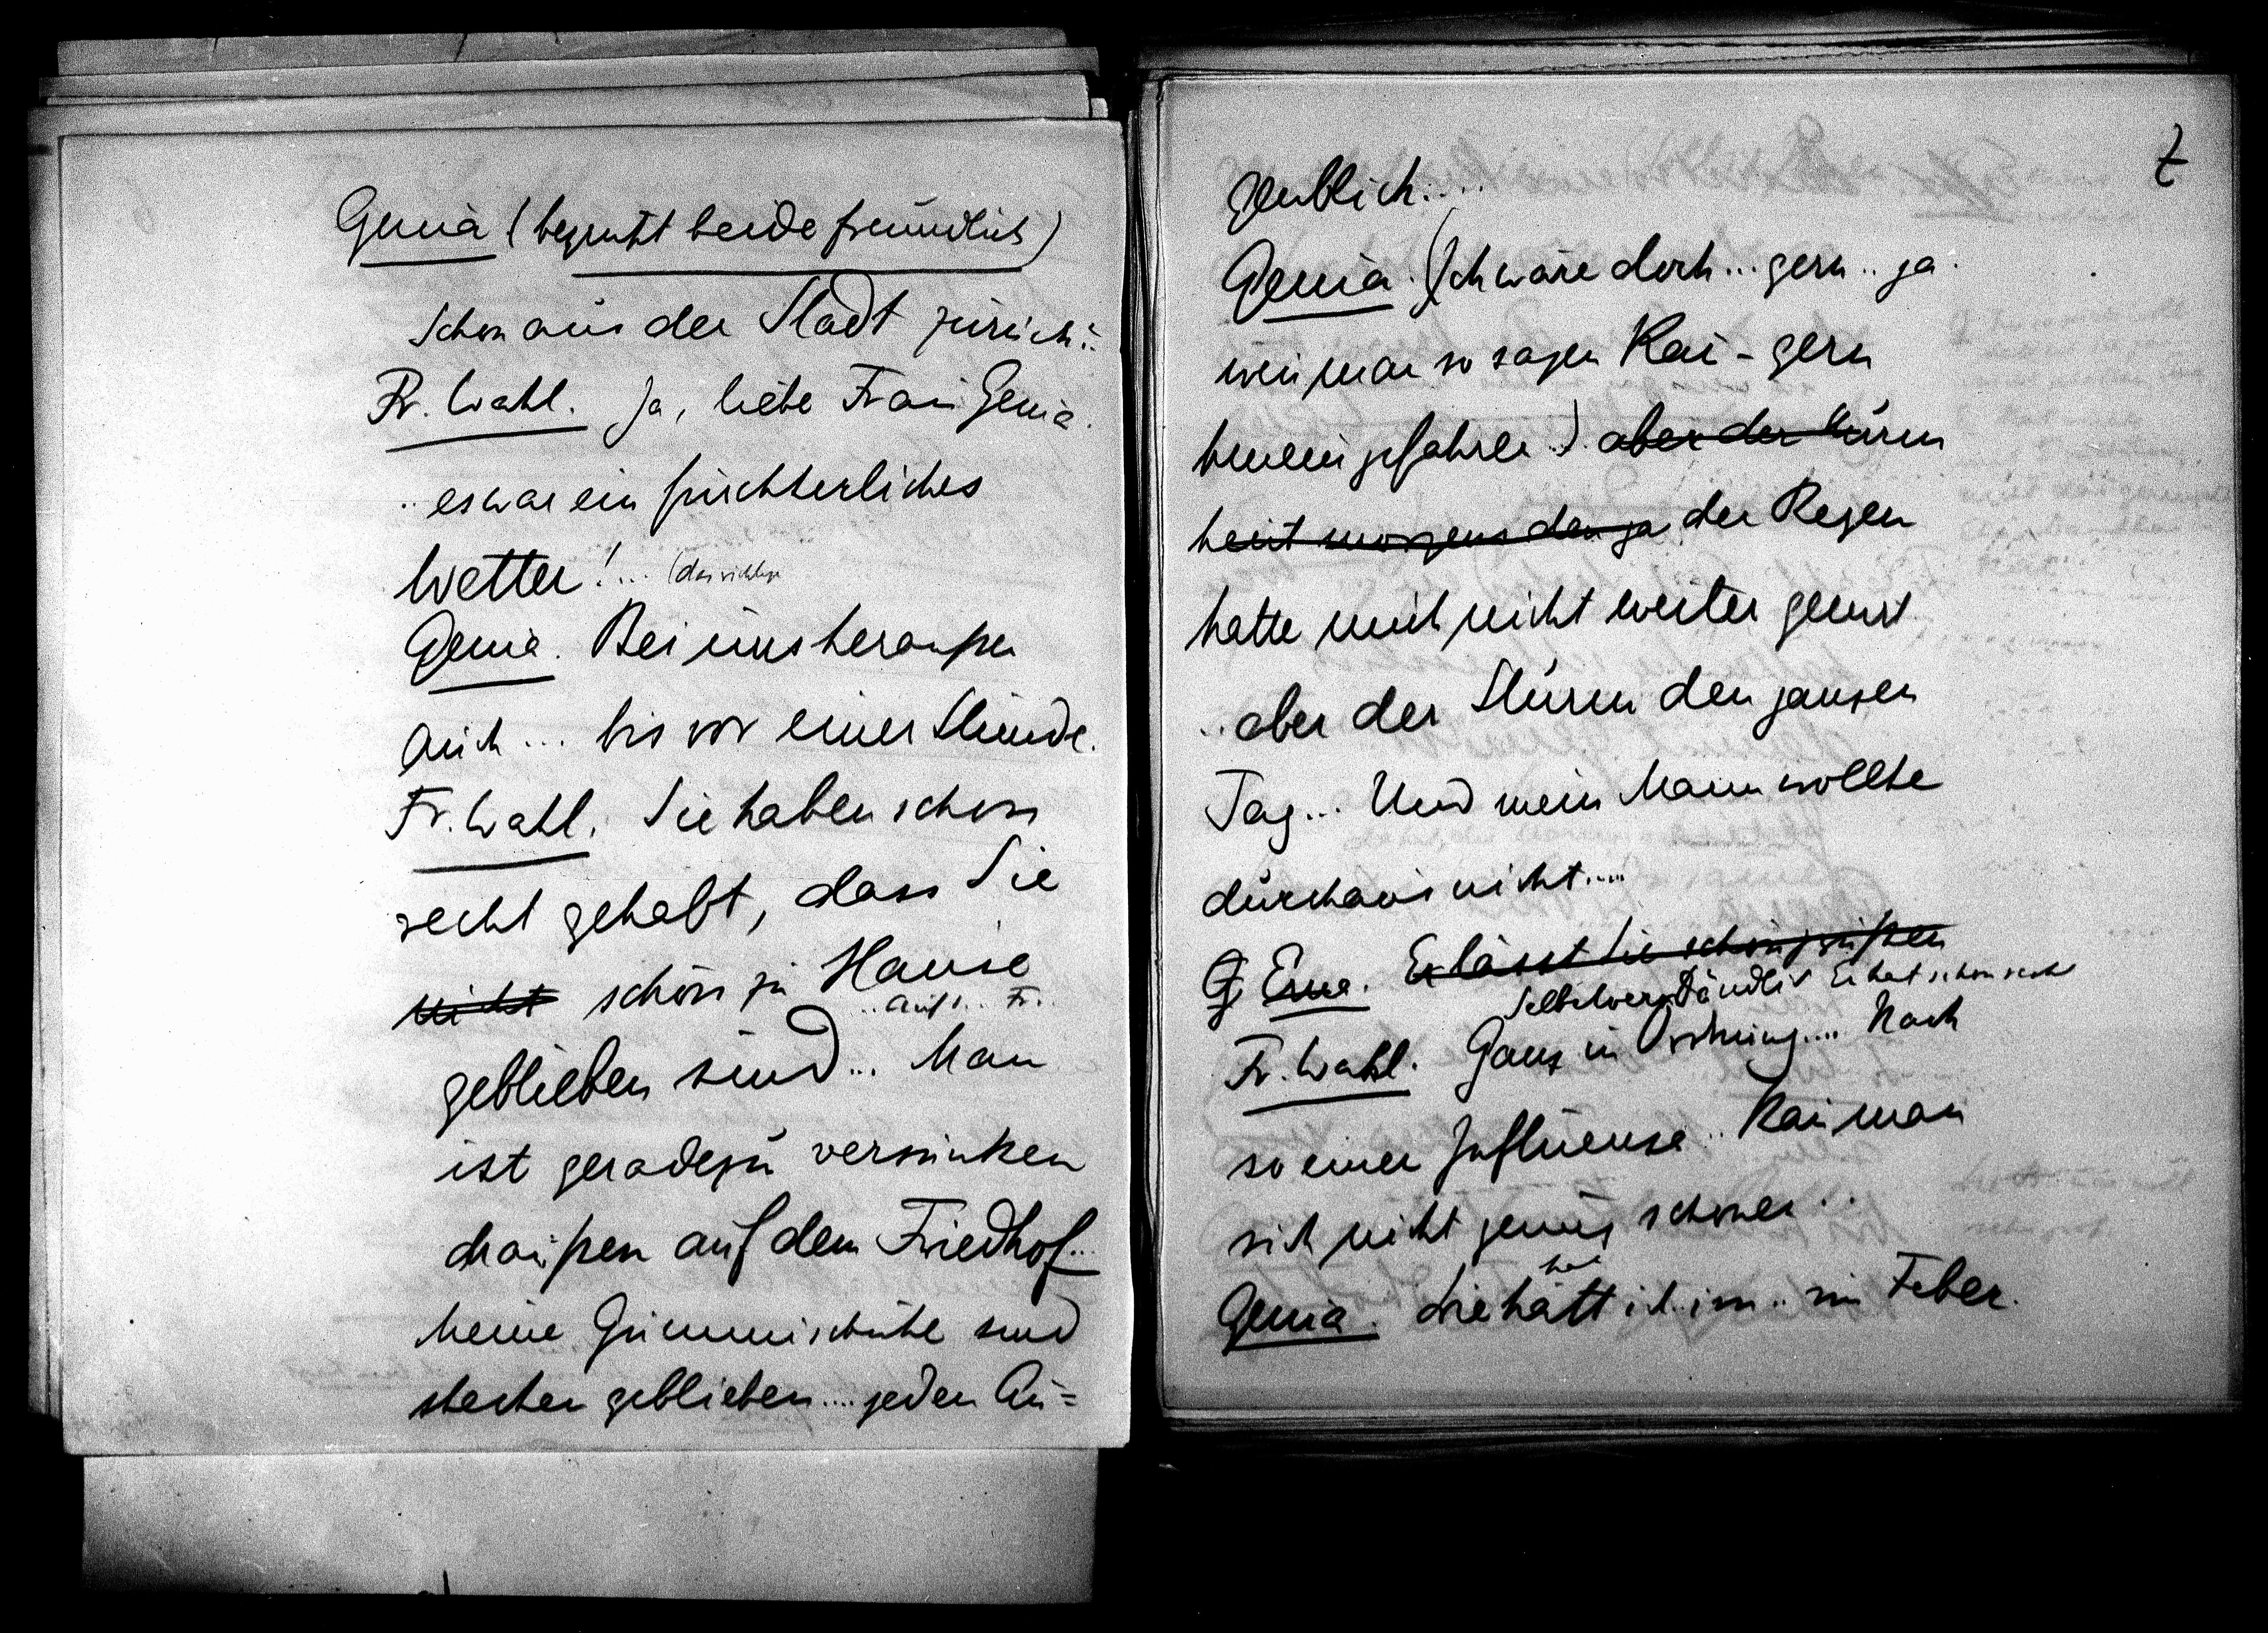 Genia (begrüßt beide freundlich)
Schon aus der Stadt zurück..
Fr. Wahl. Ja, liebe Frau Genia.
.. es war ein fürchterliches
Wetter!...
Genia. Bei uns heraußen
auch ... bis vor einer Stunde.
Fr. Wahl. Sie haben schon
recht gehabt, dass Sie
nicht schön zu Hause
geblieben sind... Man
ist geradezu versunken
draußen auf dem Friedhof...
Meine Gummischuhe sind
stecken geblieben.... jeden Au=
7
genblich....
Genia. (Ich wäre doch... gern.. ja
wen man so sagen kan - gern
hineingefahren). aber der Sturm
heut morgens den ja der Regen
hätte mich nicht weiter genirt
.. aber der Sturm den ganzen
Tag... Und mein Mann wollte
durchaus nicht....
G. Erna. Er lässt Sie schön grüßen
Selbstverständlich Er hat schon recht
Fr. Wahl. Ganz in Ordnung.... Nach
so einer Influenza.. kan man
sich nicht genug schonen..
Genia. Die hätt ich.. im.. im Feber.